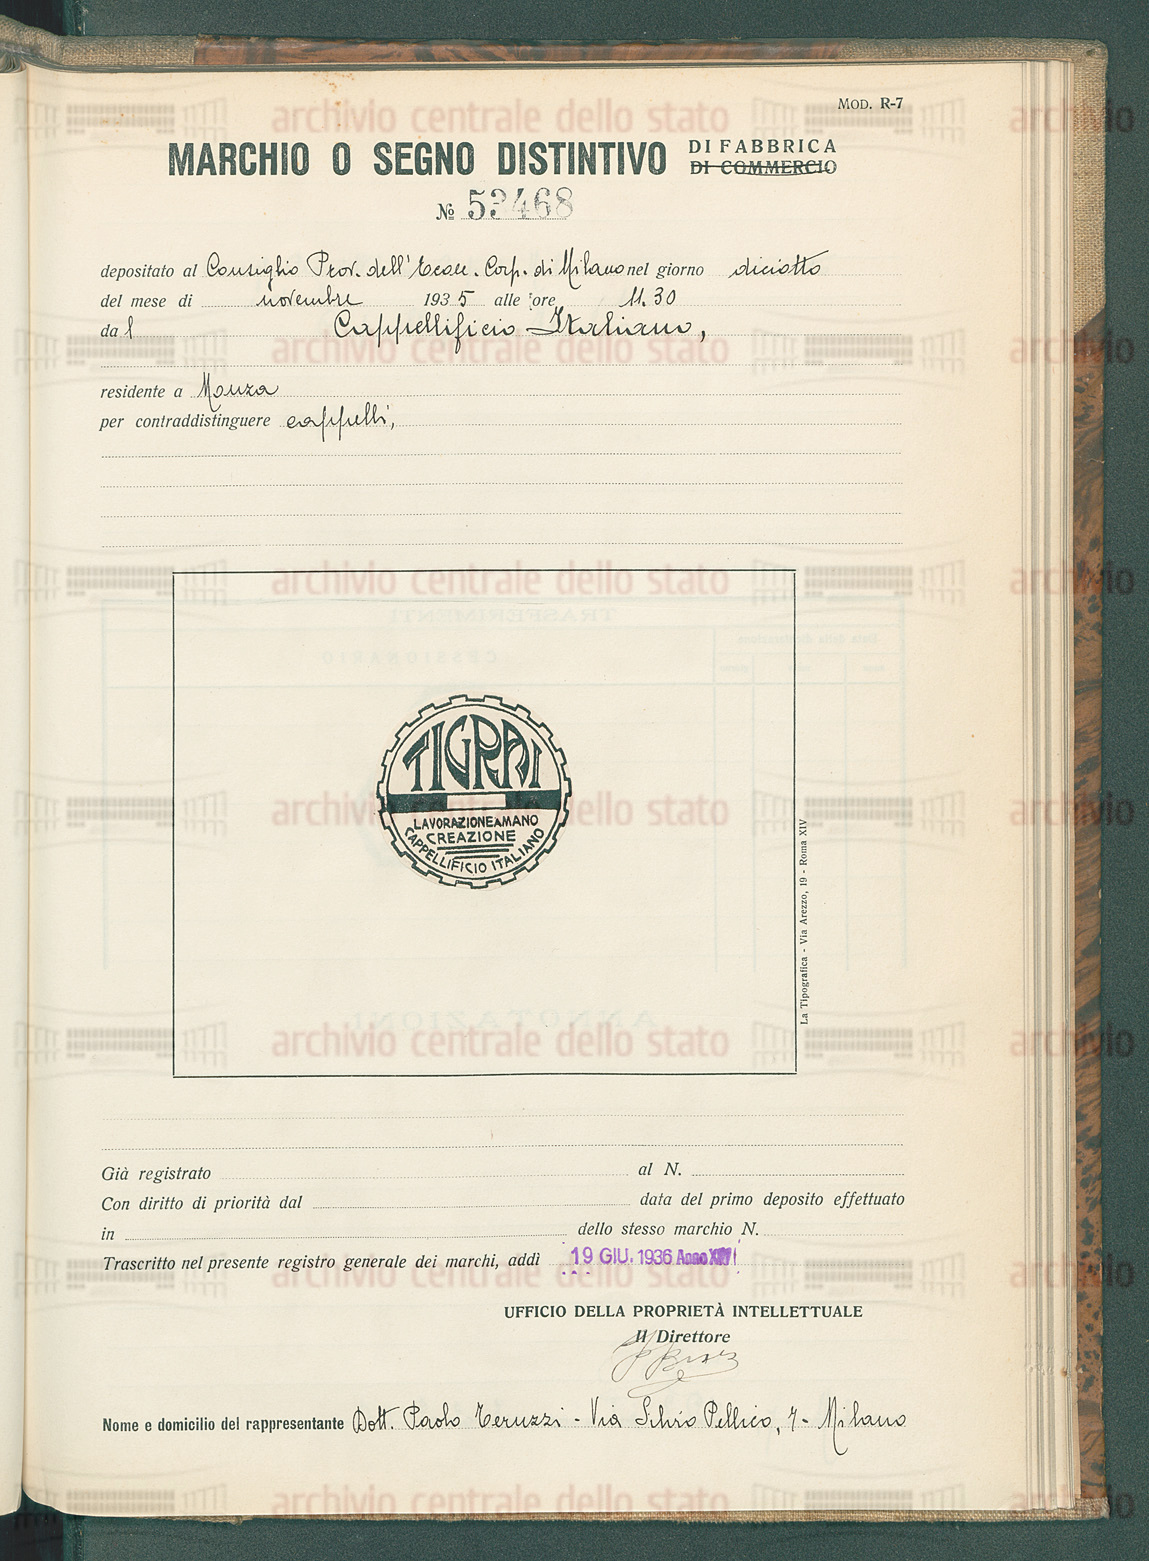 MOD. R-7
MARCHIO O SEGNO DISTINTIVO DI FABBRICA
DI COMMERCIO
№ 53468
depositato al Consiglio Prov. dell'Econ. Corp. di Milano nel giorno diciotto
del mese di novembre 1935 alle ore 11.30
dal Cappellificio Italiano,
residente a Monza
per contraddistinguere cappelli,
TIGRAI
LAVORAZIONE A MANO
CREAZIONE
CAPPELLIFICIO ITALIANO
La Tipografica - Via Arezzo, 19 - Roma XIV
Già registrato al N.
Con diritto di priorità dal data del primo deposito effettuato
in dello stesso marchio N.
Trascritto nel presente registro generale dei marchi, addì 19 GIU. 1936 Anno
UFFICIO DELLA PROPRIETÀ INTELLETTUALE
Il Direttore
Nome e domicilio del rappresentante Dott. Paolo Teruzzi - Via Silvio Pellico, 7 - Milano
archivio centrale dello stato